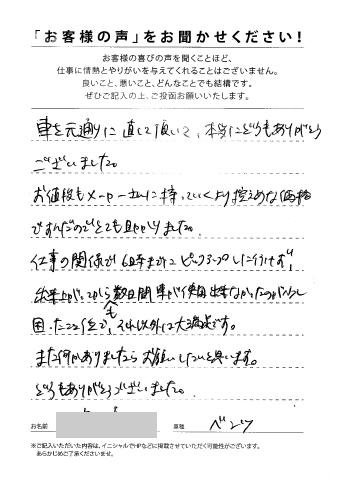 「お客様の声」をお聞かせください！
お客様の喜びの声を聞くことほど、
仕事に情熱とやりがいを与えてくれることはございません。
良いこと、悪いこと、どんなことでも結構です。
ぜひご記入の上、ご投函お願いいたします。
車を元通りに直して頂いて、本当にどうもありがとう
ございました。
お値段もメーカーさんに持っていくより控えめな価格
ですんだのでとても助かりました。
仕事の関係で6時までにピックアップしに行けず、
出来上がってから数日間車が使用出来なかったのが少し
困ったことも位で、それ以外は大満足です。
また何かありましたらお願いしたいと思います。
どうもありがとうございました。
お名前
車種 ベンツ
※ご記入いただいた内容は、イニシャルでHPなどに掲載させていただく可能性がございます。
あらかじめご了承くださいませ。